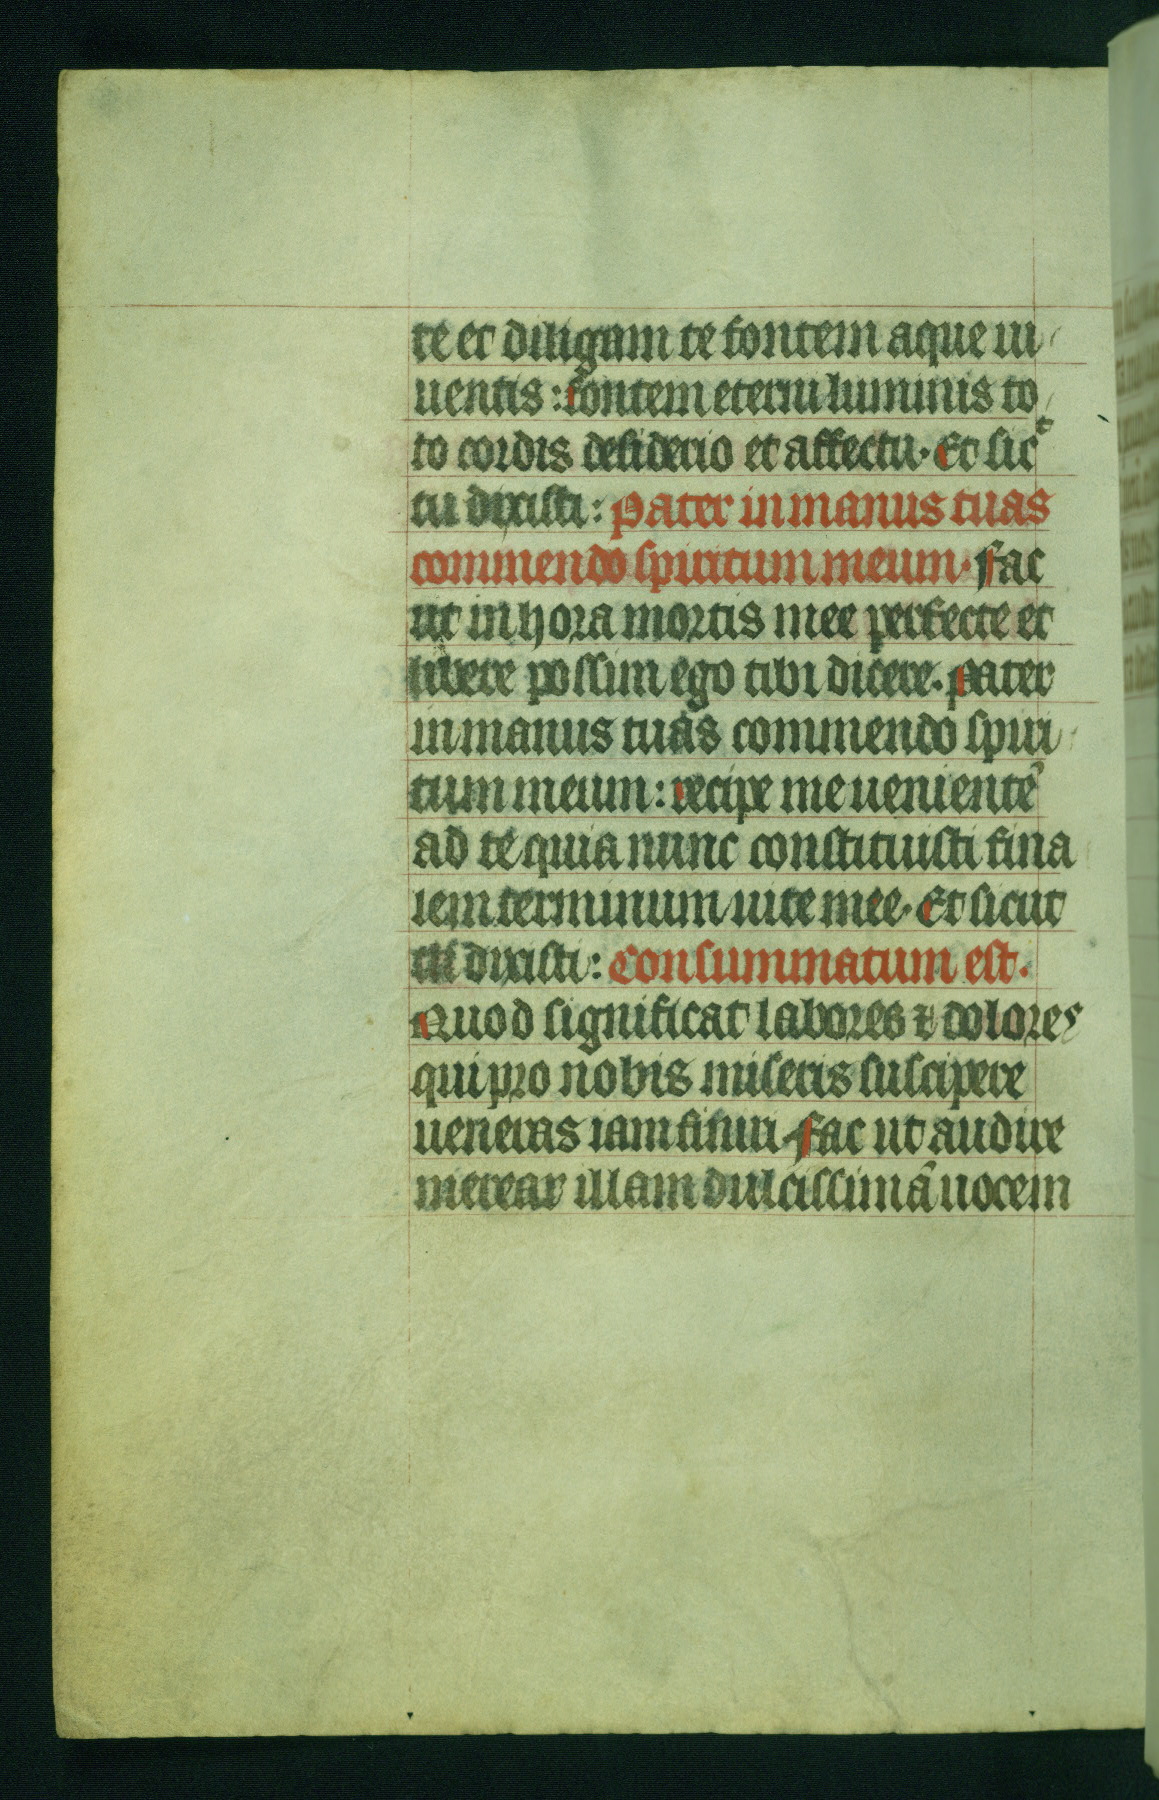 te et diligam te fontem aque ui
uentis : fontem eterni luminis to
to cordis desiderio et affectu. Et sicᵗ
tu dixisti : Pater in manus tuas
commendo spiritum meum. Fac
ut in hora mortis mee perfecte et
libere possim ego tibi dicere. Pater
in manus tuas commendo spiri
tum meum : recipe me uenientē
ad te quia nunc constituisti fina
lem terminum uite mee. Et sicut
tu dixisti : Consummatum est.
Quod significat labores ⁊ dolores
qui pro nobis miseris suscipere
ueneras iam finiri. Fac ut audire
merear illam dulcissimā uocem